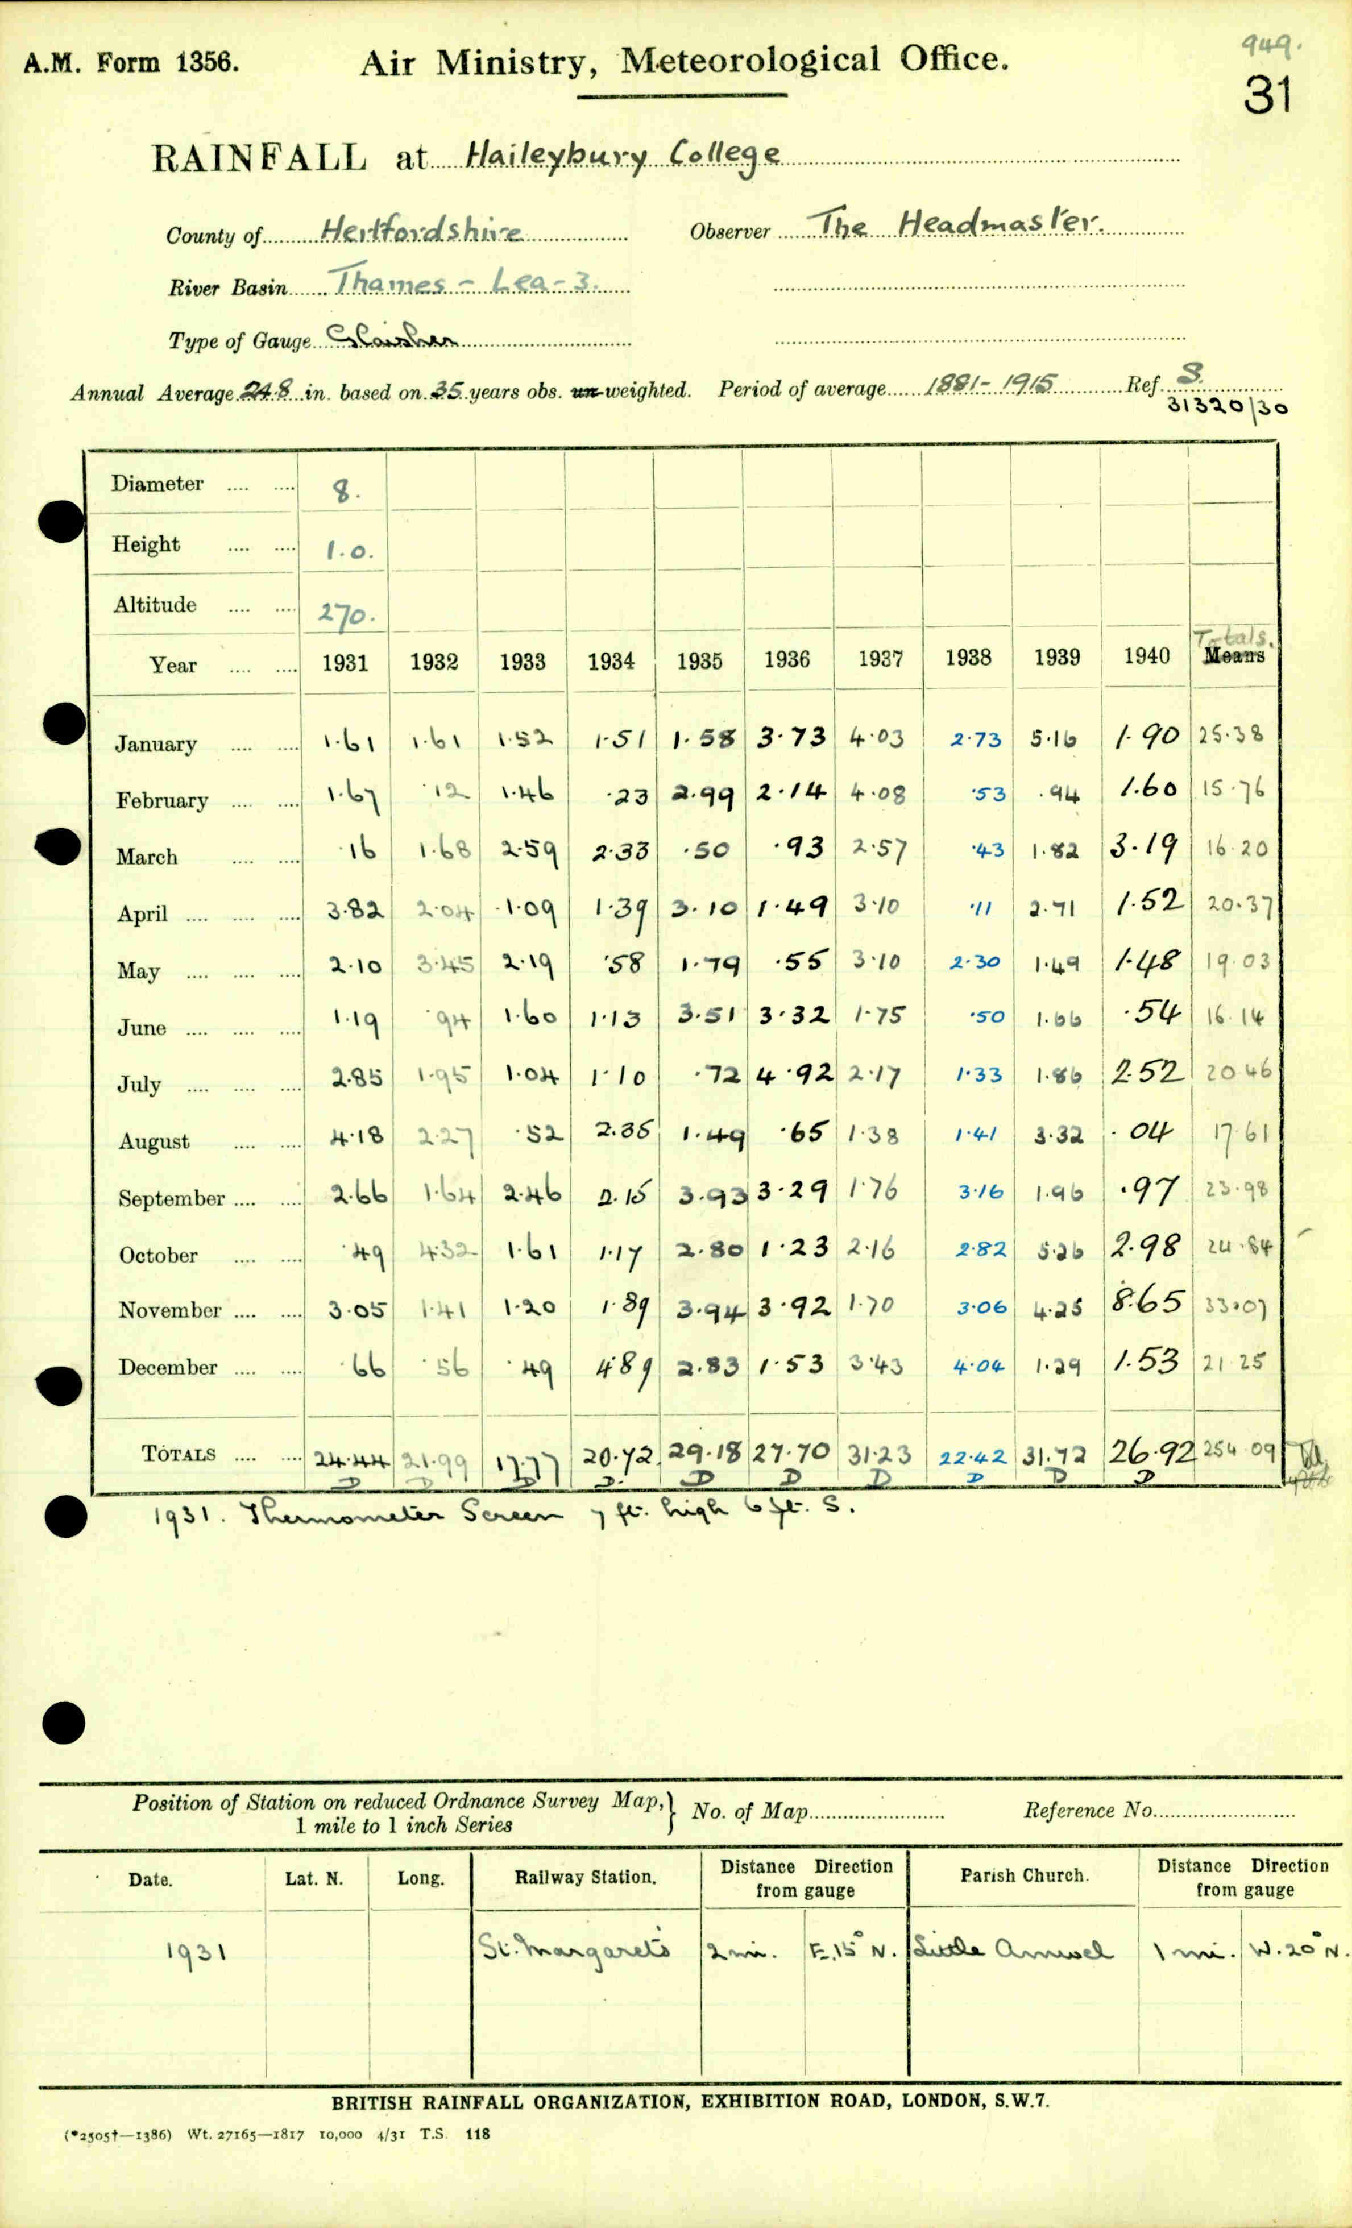 949.
A.M. Form 1356. Air Ministry, Meteorological Office.
31
RAINFALL at Haileybury College
County of Hertfordshire Observer The Headmaster.
River Basin Thames - Lea - 3.
Type of Gauge Glaisher
Annual Average 24.8 in. based on 35 years obs. un-weighted. Period of average 1881-1915 Ref. S.
31320/30
Diameter .... .... 8.
Height .... .... 1.0.
Altitude .... .... 270.
Totals.
Year .... .... 1931 1932 1933 1934 1935 1936 1937 1938 1939 1940 Means
January .... .... 1.61 1.61 1.52 1.51 1.58 3.73 4.03 2.73 5.16 1.90 25.38
February .... .... 1.67 .12 1.46 .23 2.99 2.14 4.08 .53 .94 1.60 15.76
March .... .... .16 1.68 2.59 2.33 .50 .93 2.57 .43 1.82 3.19 16.20
April .... .... .... 3.82 2.04 1.09 1.39 3.10 1.49 3.10 .11 2.71 1.52 20.37
May .... .... .... 2.10 3.45 2.19 .58 1.79 .55 3.10 2.30 1.49 1.48 19.03
June .... .... .... 1.19 .94 1.60 1.13 3.51 3.32 1.75 .50 1.66 .54 16.14
July .... .... .... 2.85 1.95 1.04 1.10 .72 4.92 2.17 1.33 1.86 2.52 20.46
August .... .... 4.18 2.27 .52 2.35 1.49 .65 1.38 1.41 3.32 .04 17.61
September .... .... 2.66 1.64 2.46 2.15 3.93 3.29 1.76 3.16 1.96 .97 23.98
October .... .... .49 4.32 1.61 1.17 2.80 1.23 2.16 2.82 5.26 2.98 24.84
November .... .... 3.05 1.41 1.20 1.89 3.94 3.92 1.70 3.06 4.25 8.65 33.07
December .... .... .66 .56 .49 4.89 2.83 1.53 3.43 4.04 1.29 1.53 21.25
TOTALS .... .... 24.44 21.99 17.77 20.72 29.18 27.70 31.23 22.42 31.72 26.92 254.09
D D D D. D D D D D D
1931. Thermometer Screen 7 ft. high 6 ft. S.
Position of Station on reduced Ordnance Survey Map,} No. of Map Reference No.
1 mile to 1 inch Series
Date. Lat. N. Long. Railway Station. Distance Direction from gauge Parish Church. Distance Direction from gauge
1931 St. Margarets 2 mi. E.15° N. Little Amwell 1 mi. W.20° N.
BRITISH RAINFALL ORGANIZATION, EXHIBITION ROAD, LONDON, S.W.7.
(*2505†—1386) Wt. 27165—1817 10,000 4/31 T.S. 118